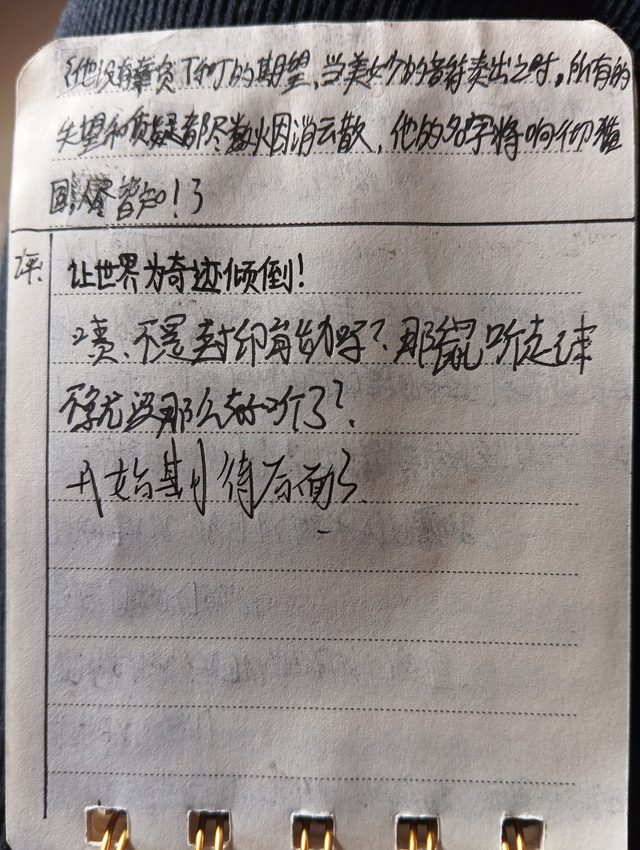 他没有辜负T和J的期望,当美妙的音符奏出之时,所有的
失望和质疑都尽数烟消云散,他的名字将响彻
皆知!
评:
让世界为奇迹倾倒!
不是封印有效吗?那 听起来
不就没那么好听了?
开始期待后面了